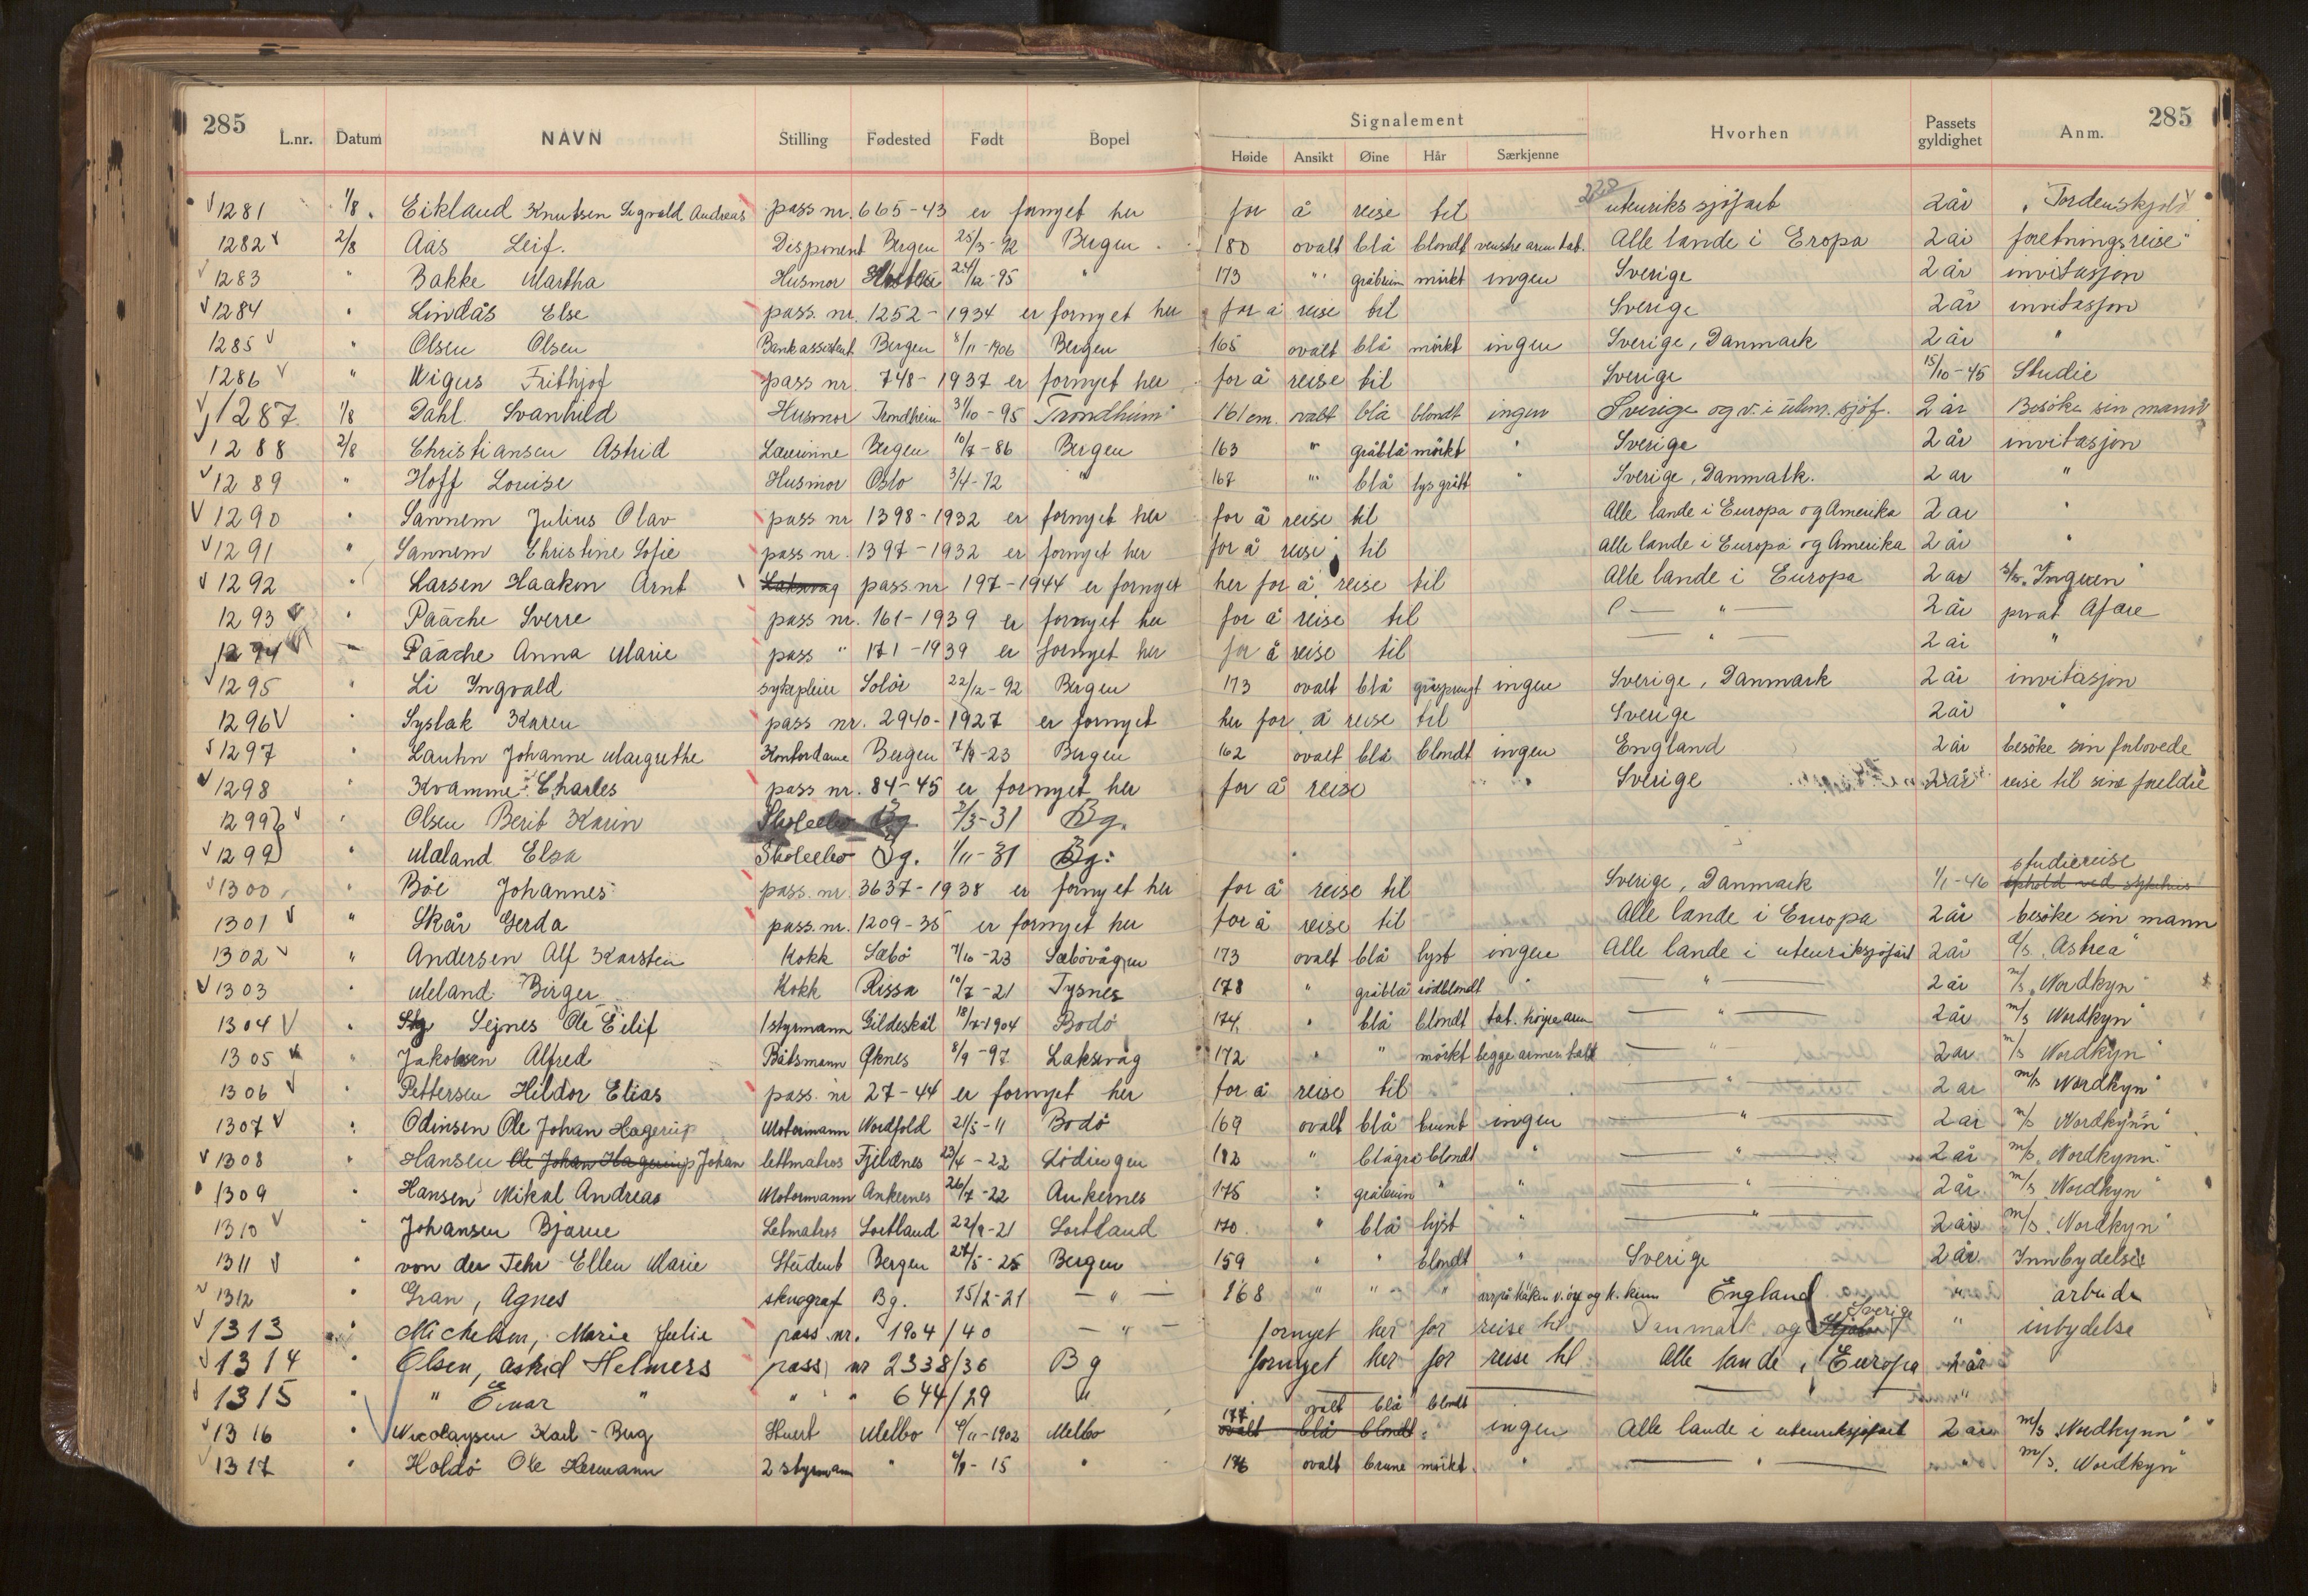 285 285
Signalement
L.nr. Datum NAVN Stilling Fødested Født Bopel Høide Ansikt Øine Hår Særkjenne Hvorhen Passets gyldighet Anm.
1281 1/8 Eikland Knutsen Sigvald Andreas pass nr. 665-43 er fornyet her for å reise til 228 utenriks sjöfart 2 år "Tordenskjold"
1282 2/8 Aas Leif. Disponent Bergen 25/5-92 Bergen 180 ovalt blå blondt venstre arm tat. Alle lande i Eropa 2 år foretningsreise"
1283 " Bakke Martha Husmor 24/12-95 " 173 " gråbrun mörkt ingen Sverige 2 år invitasjon
1284 " Lindås Else pass. nr. 1252-1934 er fornyet her for å reise til Sverige 2 år invitasjon
1285 " Olsen Olsen Bankassistent Bergen 8/11-1906 Bergen 165 ovalt blå mörkt ingen Sverige, Danmark 2 år "
1286 " Wigus Frithjof pass nr. 748-1937 er fornyet her for å reise til Sverige 15/10-45 Studie
1287 1/8 Dahl Svanhild Husmor Trondheim 31/10-95 Trondheim 161 cm. ovalt blå blondt ingen Sverige og v. i utenr. sjöf. 2 år Besöke sin mann
1288 2/8 Christiansen Astrid Lærerinne Bergen 10/7-86 Bergen 163 " gråblå mörkt " Sverige 2 år invitasjon
1289 " Hoff Louise Husmor Oslo 3/4-72 " 167 " blå lys grått " Sverige, Danmark. 2 år "
1290 " Sannem Julius Olav pass nr 1398-1932 er fornyet her for å reise til Alle lande i Europa og Amerika 2 år "
1291 " Sannem Christine Sofie pass nr. 1397-1932 er fornyet her for å reise til Alle lande i Europa og Amerika 2 år "
1292 " Larsen Haakon Arnt Laksevåg pass nr 197-1944 er fornyet her for å reise til Alle lande i Europa 2 år s/s. "Inguen"
1293 " Paasche Sverre pass nr. 161-1939 er fornyet her for å reise til — " — 2 år privat Afære
1294 — Paasche Anna Marie pass " 171-1939 er fornyet her for å reise til — " — 2 år "
1295 " Li Ingvald sykepleier Solör 22/12-92 Bergen 173 ovalt blå gråsprengt ingen Sverige, Danmark 2 år invitasjon
1296 " Syslak Karen pass nr. 2940-1927 er fornyet her for å reise til Sverige 2 år "
1297 " Lauhn Johanne Margrethe Kontordame Bergen 7/9-23 Bergen 162 ovalt blå blondt ingen England 2 år besöke sin forlovede
1298 " Kvamme Charles pass nr. 84-45 er fornyet her for å reise Sverige 2 år reise til sine foeldre
1299 " Olsen Berit Karin Skoleelev Bg. 2/3-31 Bg.
1299 " Mæland Elsa Skoleelev Bg. 1/11-31 Bg.
1300 " Böe Johannes pass. nr. 3637-1938 er fornyet her for å reise til Sverige, Danmark 1/1-46 studiereise ophold ved sykehus
1301 " Skår Gerda pass. nr. 1209-35 er fornyet her for å reise til Alle lande i Europa 2 år besöke sin mann
1302 " Andersen Alf Karsten Kokk Sæbö 7/10-23 Sæbövågen 173 ovalt blå lyst ingen Alle lande i utenriksjöfart 2 år "Astrea"
1303 " Meland Birger Kokk Rissa 10/7-21 Tysnes 178 " gråblå rödblondt " — " — 2 år m/s "Nordkyn"
1304 " Sejnes Ole Eilif 1 styrmann Gildeskål 18/7-1904 Bodö 174 " blå blondt tat. höyre arm — " — 2 år m/s "Nordkyn"
1305 " Jakobsen Alfred Båtsmann Öknes 8/9-97 Laksevåg 172 " " mörkt begge armer tatt — " — 2 år m/s "Nordkyn"
1306 " Pettersen Hildor Elias pass. nr 27-44 er fornyet her for å reise til — " — 2 år m/s "Nordkyn"
1307 " Odinsen Ole Johan Hagerup Motormann Nordfold 21/5-11 Bodö 169 ovalt blå brunt ingen — " — 2 år m/s "Nordkynn"
1308 " Hansen Ole Johan Hagerup Johan lettmatros Fjeldnes 23/4-22 Lödingen 182 " blågrå blondt " — " — 2 år m/s. "Nordkynn."
1309 " Hansen Mikal Andreas Motormann Ankernes 26/7-22 Ankernes 175 " gråbrun " " — " — 2 år m/s "Nordkyn"
1310 " Johansen Bjarne Letmatros Sortland 22/9-21 Sortland 170 " blå lyst " — " — 2 år m/s "Nordkyn"
1311 " von der Fehr Ellen Marie Student Bergen 27/5-25 Bergen 159 " " blondt " Sverige 2 år Innbydelse
1312 " Gran, Agnes stenograf Bg. 15/2-21 — " — 168 " " " arr på haken v. öye og h. kinn England " arbude
1313 " Michelsen, Marie Julie pass. nr. 1904/40 — " — fornyet her for reise til Danmark og Sverige " inbydelse
1314 " Olsen, Astrid Helmers pass nr 2338/36 Bg fornyet her for reise til Alle lande i Europa 2 år
1315 " " Einar " " " " 644/29 " — " — "
1316 " Nicolaysen Karl-Berg Stuert Melbo 9/11-1902 Melbo 177 ovalt blå blondt ovalt blå blondt ingen Alle lande i utenriksjöfart 2 år m/s "Nordkynn"
1317 " Holdö Ole Hermann 2 styrmann " 6/9-15 " 176 ovalt brune mörkt " — " — " m/s. "Nordkyn"